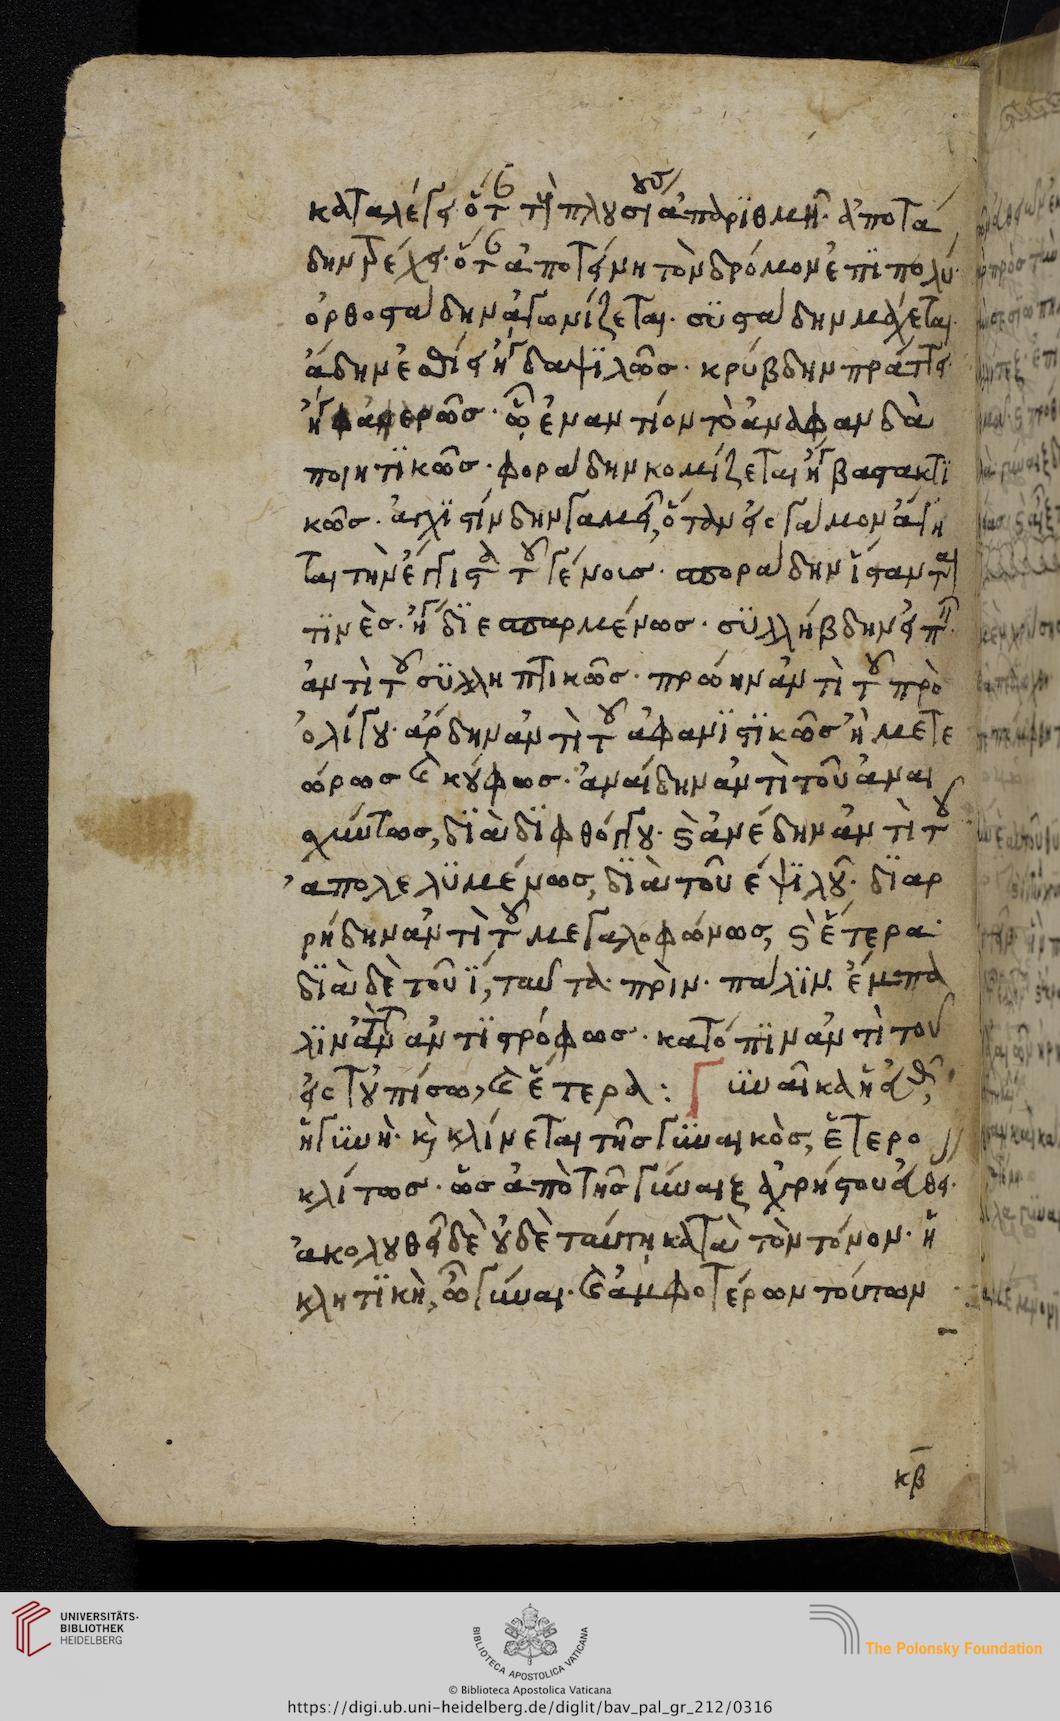 καταλέγει ὅταν τις πλουσίους ἀπαριθμῇ. ἀποτά
δην τρέχει. ὅταν ἀποτείνῃ τὸν δρόμον ἐπὶ πολύ.
ὀρθοστάδην ἀγωνίζεται. συστάδην μάχεται.
ἄδην ἐσθίει ἤγουν δαψιλῶς. κρύβδην πράττει.
ἤγουν φανερῶς. ᾧ ἐναντίον τὸ ἀναφανδὰ
ποιητικῶς. φοράδην κομίζεται ἤγουν βαστακτι
κῶς. ἀγχιστίνδην γαμεῖ, ὅταν εἰς γάμον ἄγη
ται τὴν ἔγγιστα τοῦ γένους. σποράδην ἵστανται
τινὲς. ἤγουν διεσπαρμένως. συλλήβδην εἰπεῖν.
ἀντὶ τοῦ συλληπτικῶς. πρώην ἀντὶ τοῦ πρὸ
ὀλίγου. ἄρδην ἀντὶ τοῦ ἀφανιστικῶς ἢ μετε
ώρως καὶ κούφως. ἀναίδην ἀντὶ τοῦ ἀναι
σχύντως, διὰ διφθόγγου. καὶ ἀνέδην ἀντὶ τοῦ
ἀπολελυμένως, διὰ τοῦ ε ψιλοῦ. διαρ
ρήδην ἀντὶ τοῦ μεγαλοφώνως, καὶ ἕτερα.
διὰ δὲ τοῦ ϊ, ταῦτα. πρὶν. πάλιν. ἔμπα
λιν ἀντὶ τοῦ ἀντιστρόφως. κατόπιν ἀντὶ τοῦ
εἰς τοὐπίσω, καὶ ἕτερα: Γυναῖκα ἡ εὐθεῖα,
ἡ γυνὴ. καὶ κλίνεται τῆς γυναικὸς, ἑτερο
κλίτως. ὡς ἀπὸ τῆς γύναιξ ἀχρήστου εὐθείας.
ἀκολουθεῖ δὲ οὐδὲ ταύτῃ κατὰ τὸν τόνον. ἡ
κλητικὴ, ὦ γύναι. καὶ ἀμφοτέρων τούτων
κβ
UNIVERSITÄTS-
BIBLIOTHEK
HEIDELBERG
BIBLIOTECA APOSTOLICA VATICANA
The Polonsky Foundation
© Biblioteca Apostolica Vaticana
https://digi.ub.uni-heidelberg.de/diglit/bav_pal_gr_212/0316